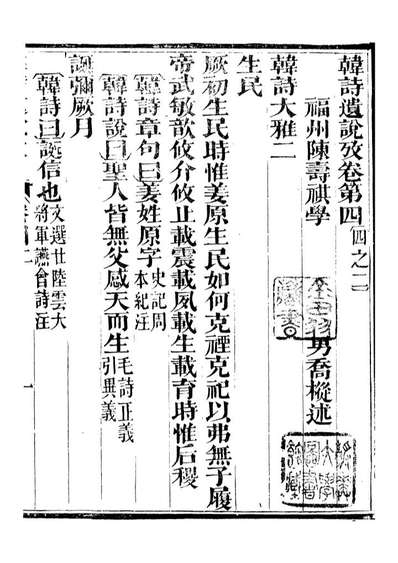 韓詩遺說攷卷第四 四之二
福州陳壽祺學 男喬樅述
韓詩大雅二
生民
厥初生民時惟姜原生民如何克禋克祀以弗無子履
帝武敏歆攸介攸止載震載夙載生載育時惟后稷
韓詩章句曰姜姓原字 史記周本紀注
韓詩說曰聖人皆無父感天而生 毛詩正義引異義
誕彌厥月
韓詩曰誕信也 文選廿陸雲大將軍讌會詩注
一